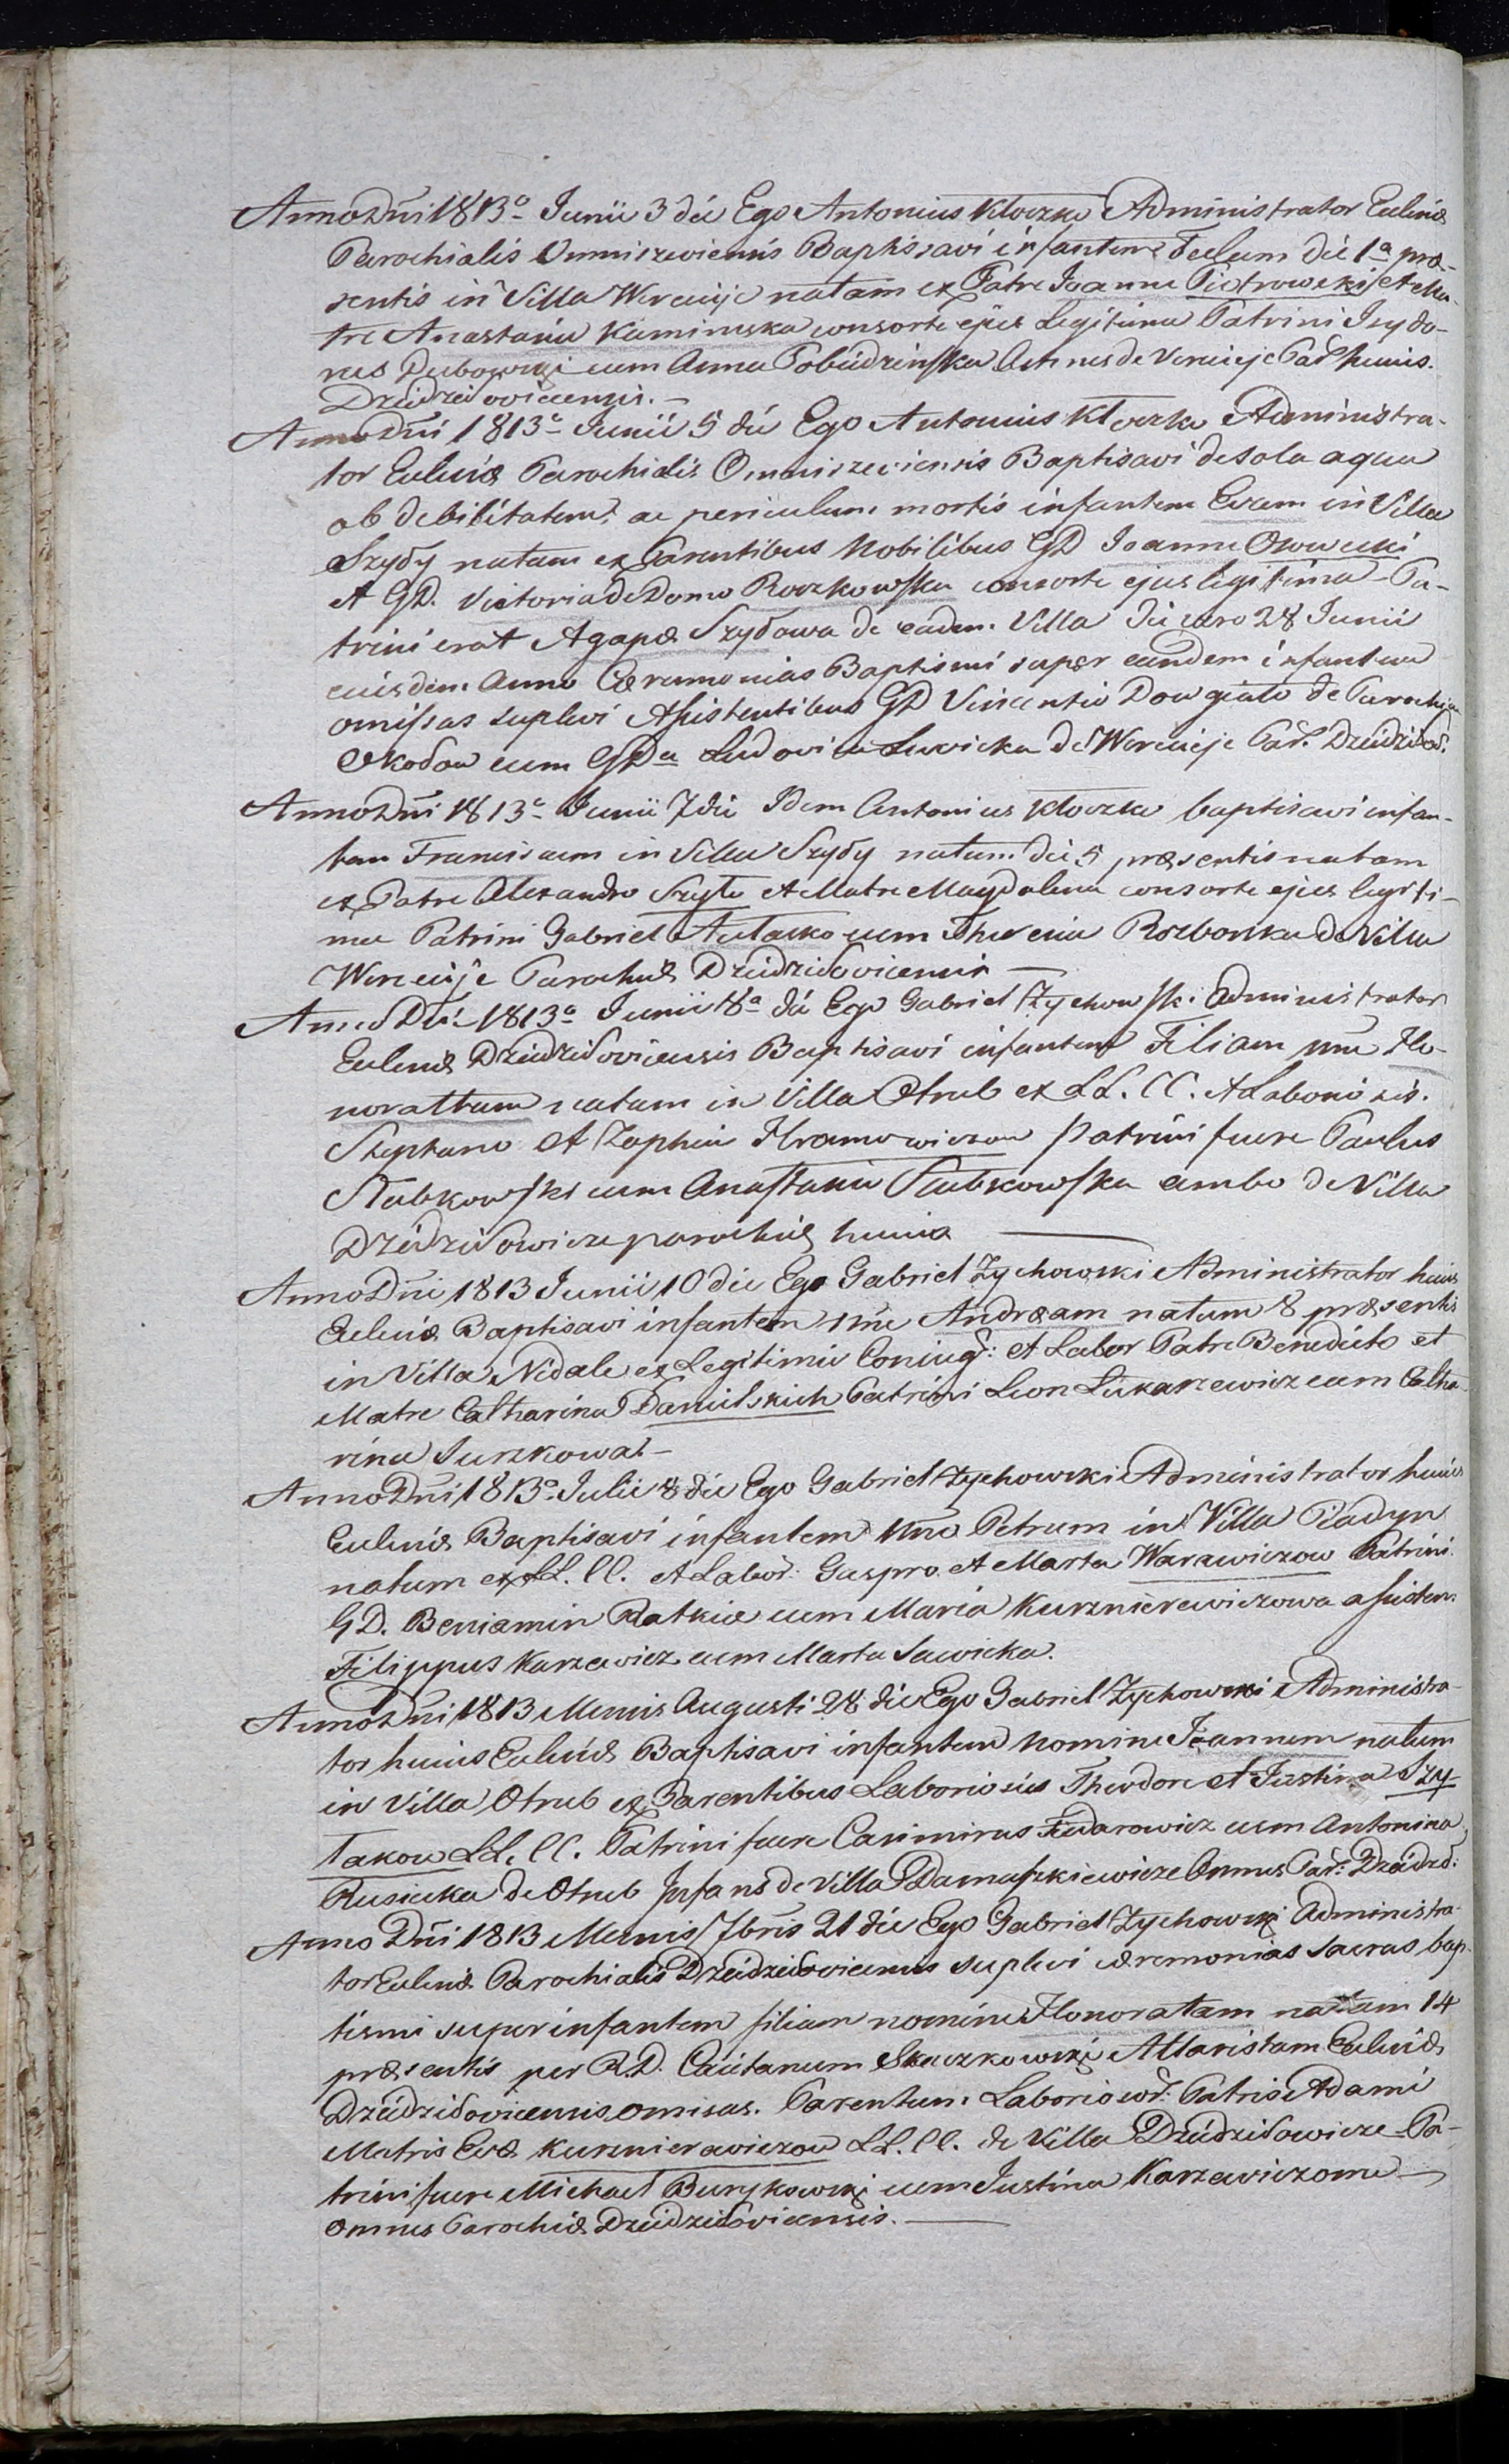 Anno Dni 1813o Junii 3 die Ego Antonius Kloczko Administrator Eccliæ
Parochialis Omniszeviensis Baptisavi infantem Teclam die 1a præ-
sentis in Villa Wereieje natam ex Patre Joanne Piotrowski et Ma-
tre Anastasia Kaminska consorte ejus Legitima Patrini Isydo-
rus Dubowski cum Anna Pobudzinska omnes de Vereieje Par huius.
Dziedziłoviciensis. —
Anno Dni 1813o Junii 5 die Ego Antonius Kloczko Administra-
tor Eccliæ Parochialis Omniszeviensis Baptisavi de sola aqua
ob debilitatem, ac periculum mortis infantem Evam in Villa
Szydy natam ex Parentibus Nobilibus GD Joanne Osowecki
et GD. Victoria de Domo Roczkowska consorte ejus legitima Pa-
trini erat Agapæ Szydowa de eadem Villa die vero 28 Junii
eiusdem Anno Cæremonias Baptismi super eandem infantem
omissas suplevi Assistentibus GD Vincentio Dowgiało de Parochija
Okołow cum GDa Ludovica Lewicka de Wereieje Par. Dziedził.
Anno Dni 1813o Junii 7 die Idem Antonius Kloczko baptisavi infan-
tem Franciscum in Villa Szydy natum die 5 præsentis natam
ex Patre Alexandro Szyło et Matre Magdalena consorte ejus legiti-
ma Patrini Gabriel Autasko cum Theresia Rozborska de Villa
Wereieje Parochiæ Dziedziłoviciensis —
Anno Dni 1813o Junii 8a die Ego Gabriel Zychowski Administrator
Eccliæ Dziedziłoviciensis Baptisavi infantem Filiam nne Ho-
norattam natam in Villa Otrub ex LL. CC. et Laboriosis.
Stephano et Zophia Hramowiczow patrini fuere Paulus
Stubkowski cum Anastasia Stubkowska ambo de Villa
Dziedziłowicze parochiæ huius —
Anno Dni 1813 Junii 10 die Ego Gabriel Zychowski Administrator huius
Eccliæ Baptisavi infantem nne Andræam natum 8 præsentis
in Villa Nidale ex Legitimis Coniug: et Labor Patre Benedicto et
Matre Catharina Danielskich Patrini Leon Lukaszewicz cum Catha-
rina Juszkowa. —
Anno Dni 1813o Julii 8 die Ego Gabriel Zychowski Administrator huius
Eccliæ Baptisavi infantem nne Petrum in Villa Piadyn
natum ex LL. CC. et Labor: Gaspro et Marta Warawiczow Patrini.
GD. Beniamin Ratkie cum Maria Kuzznierewiczowa assisten:
Filippus Karzewicz cum Marta Sawicka.
Anno Dni 1813 Mensis Augusti 28 die Ego Gabriel Zychowski Administra-
tor huius Eccliæ Baptisavi infantem nomine Joannem natum
in Villa Otrub ex Parentibus Laboriosis Theodore et Justina Szy-
łakow LL. CC. Patrini fuere Casimirus Fiedarowicz cum Antonina
Rusiecka de Otrub Infans de Villa Damaszkiewicze Omnes Par: Dziedzł:
Anno Dni 1813 Mensis 7bris 21 die Ego Gabriel Zychowski Administra-
tor Eccliæ Parochialis Dziedziłoviciensis suplevi ceremonias sacras bap-
tismi super infantem filiam nomine Honoratam natam 14
præsentis per R.D. Caietanum Skuczkowski Altaristam Eccliæ
Dziedziłoviciensis omisas. Parentum Laboriosor: Patris Adami
Matris Evæ Kuzznierawiczow LL. CC. de Villa Dziedziłowicze Pa-
trini fuere Michael Burykowski cum Justina Karzewiczowa —
Omnes Parochiæ Dziedziłoviciensis. —